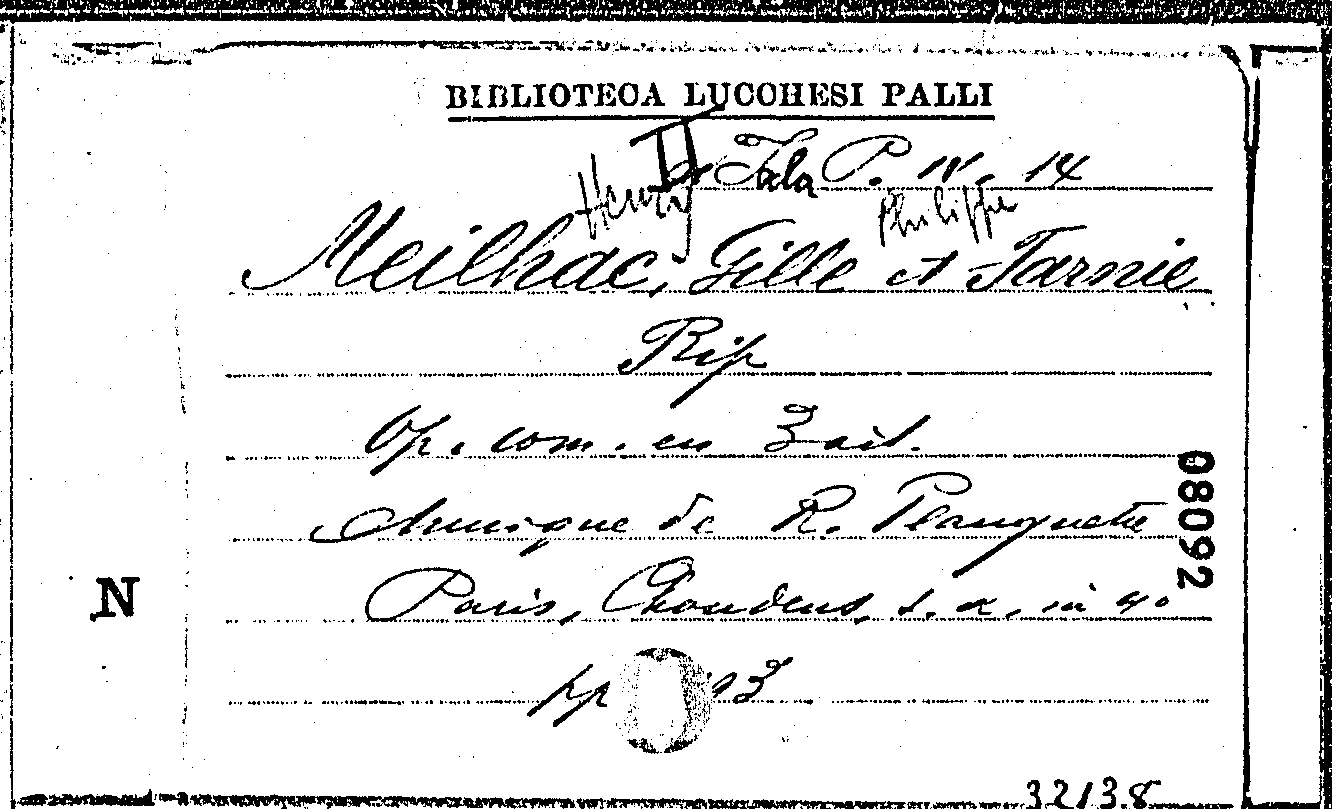 BIBLIOTECA LUCCHESI PALLI
II Sala P. IV. 14
Henry Philippe
Meilhac, Gille et Farnie
Rip
Op. com. en 3 act.
Musique de R. Planquette
Paris, Choudens, s. a. in 4º
pp 93
N
08092
32138